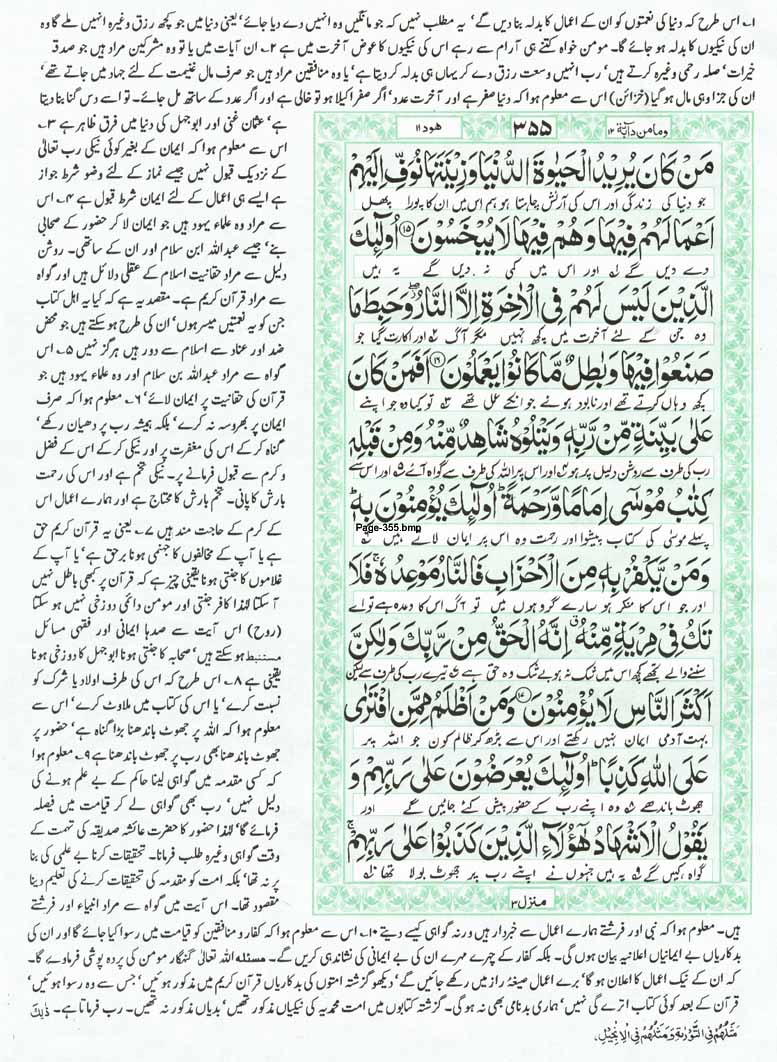 ۱؎ اس طرح کہ دنیا کی نعمتوں کو ان کے اعمال کا بدلہ بنا دیں گے‘ یہ مطلب نہیں کہ جو مانگیں وہ انہیں دے دیا جائے‘ یعنی دنیا میں جو کچھ رزق وغیرہ انہیں ملے گا وہ
ان کی نیکیوں کا بدلہ ہو جائے گا۔ مومن خواہ کتنے ہی آرام سے رہے اس کی نیکیوں کا عوض آخرت میں ہے ۲؎ ان آیات میں یا تو وہ مشرکین مراد ہیں جو صدقہ
خیرات‘ صلہ رحمی وغیرہ کرتے ہیں‘ رب انہیں وسعت رزق دے کر یہاں ہی بدلہ کر دیتا ہے‘ یا وہ منافقین مراد ہیں جو صرف مال غنیمت کے لئے جہاد میں جاتے تھے‘
ان کی جزا وہی مال ہو گیا (خزائن) اس سے معلوم ہوا کہ دنیا صفر ہے اور آخرت عدد‘ اگر صفر اکیلا ہو تو خالی ہے اور اگر عدد کے ساتھ مل جائے۔ تو اسے دس گنا بنا دیتا
ہے‘ عثمان غنی اور ابوجہل کی دنیا میں فرق ظاہر ہے ۳؎
اس سے معلوم ہوا کہ ایمان کے بغیر کوئی نیکی رب تعالٰی
کے نزدیک قبول نہیں جیسے نماز کے لئے وضو شرط جواز
ہے ایسے ہی اعمال کے لئے ایمان شرط قبول ہے ۴؎ اس
سے مراد وہ علماء یہود ہیں جو ایمان لا کر حضور کے صحابی
بنے‘ جیسے عبداللہ ابن سلام اور ان کے ساتھی۔ روشن
دلیل سے مراد حقانیت اسلام کے عقلی دلائل ہیں اور گواہ
سے مراد قرآن کریم ہے۔ مقصد یہ ہے کہ کیا یہ اہل کتاب
جن کو یہ نعمتیں میسر ہوں‘ ان کی طرح ہو سکتے ہیں جو محض
ضد اور عناد سے اسلام سے دور ہیں ہرگز نہیں ۵؎ اس
گواہ سے مراد عبداللہ بن سلام اور وہ علماء یہود ہیں جو
قرآن کی حقانیت پر ایمان لائے‘ ۶؎ معلوم ہوا کہ صرف
ایمان پر بھروسہ نہ کرے‘ بلکہ ہمیشہ رب پر دھیان رکھے‘
گناہ کر کے اس کی مغفرت پر اور نیکی کر کے اس کے فضل
و کرم سے قبول فرمانے پر۔ نیکی تخم ہے اور اس کی رحمت
بارش کا پانی۔ تخم بارش کا محتاج ہے اور ہمارے اعمال اس
کے کرم کے حاجت مند ہیں ۷؎ یعنی یہ قرآن کریم حق
ہے یا آپ کے مخالفوں کا جہنمی ہونا برحق ہے‘ یا آپ کے
غلاموں کا جنتی ہونا یقینی چیز ہے کہ قرآن پر کبھی باطل نہیں
آ سکتا لہٰذا کافر جنتی اور مومن دائمی دوزخی نہیں ہو سکتا
(روح) اس آیت سے صدہا ایمانی اور فقہی مسائل
مستنبط ہو سکتے ہیں‘ صحابہ کا جنتی ہونا ابوجہل کا دوزخی ہونا
یقینی ہے ۸؎ اس طرح کہ اس کی طرف اولاد یا شرک کو
نسبت کرے‘ یا اس کی کتاب میں ملاوٹ کرے‘ اس سے
معلوم ہوا کہ اللہ پر جھوٹ باندھنا بڑا گناہ ہے‘ حضور پر
جھوٹ باندھنا بھی رب پر جھوٹ باندھنا ہے ۹؎ معلوم ہوا
کہ کسی مقدمہ میں گواہی لینا حاکم کے بے علم ہونے کی
دلیل نہیں‘ رب بھی گواہی لے کر قیامت میں فیصلہ
فرمائے گا‘ لہٰذا حضور کا حضرت عائشہ صدیقہ کی تہمت کے
وقت گواہی وغیرہ طلب فرمانا۔ تحقیقات کرنا بے علمی کی بنا
پر نہ تھا‘ بلکہ امت کو مقدمہ کی تحقیقات کرنے کی تعلیم دینا
مقصود تھا۔ اس آیت میں گواہ سے مراد انبیاء اور فرشتے
ومامن دآبۃ ۱۲
۳۵۵
ھود ۱۱
مَنْ كَانَ يُرِيْدُ الْحَيٰوةَ الدُّنْيَا وَزِيْنَتَهَا نُوَفِّ اِلَيْهِمْ
جو دنیا کی زندگی اور اس کی آرائش چاہتا ہو ہم اس میں ان کا پورا پھل
اَعْمَالَهُمْ فِيْهَا وَهُمْ فِيْهَا لَا يُبْخَسُوْنَ ۝۱۵ اُولٰٓئِكَ
دے دیں گے ۱؎ اور اس میں کمی نہ دیں گے یہ ہیں
الَّذِيْنَ لَيْسَ لَهُمْ فِى الْاٰخِرَةِ اِلَّا النَّارُ ۖ وَحَبِطَ مَا
وہ جن کے لئے آخرت میں کچھ نہیں مگر آگ ۲؎ اور اکارت گیا جو
صَنَعُوْا فِيْهَا وَبٰطِلٌ مَّا كَانُوْا يَعْمَلُوْنَ ۝۱۶ اَفَمَنْ كَانَ
کچھ وہاں کرتے تھے اور نابود ہوئے جو انکے عمل تھے ۳؎ تو کیا وہ جو اپنے
عَلٰى بَيِّنَةٍ مِّنْ رَّبِّهٖ وَيَتْلُوْهُ شَاهِدٌ مِّنْهُ وَمِنْ قَبْلِهٖ
رب کی طرف سے روشن دلیل پر ہو ۴؎ اور اس پر اللہ کی طرف سے گواہ آئے ۵؎ اور اس سے
كِتٰبُ مُوْسٰٓى اِمَامًا وَّرَحْمَةً ؕ اُولٰٓئِكَ يُؤْمِنُوْنَ بِهٖ ؕ
Page-355.bmp
پہلے موسٰی کی کتاب پیشوا اور رحمت وہ اس پر ایمان لاتے ہیں ۶؎
وَمَنْ يَّكْفُرْ بِهٖ مِنَ الْاَحْزَابِ فَالنَّارُ مَوْعِدُهٗ ۚ فَلَا
اور جو اس کا منکر ہو سارے گروہوں میں تو آگ اس کا وعدہ ہے تو اے
تَكُ فِىْ مِرْيَةٍ مِّنْهُ ۗ اِنَّهُ الْحَقُّ مِنْ رَّبِّكَ وَلٰكِنَّ
سننے والے تجھے کچھ اس میں شک نہ ہو بے شک وہ حق ہے ۷؎ تیرے رب کی طرف سے لیکن
اَكْثَرَ النَّاسِ لَا يُؤْمِنُوْنَ ۝۱۷ وَمَنْ اَظْلَمُ مِمَّنِ افْتَرٰى
بہت آدمی ایمان نہیں رکھتے اور اس سے بڑھ کر ظالم کون جو اللہ پر
عَلَى اللّٰهِ كَذِبًا ؕ اُولٰٓئِكَ يُعْرَضُوْنَ عَلٰى رَبِّهِمْ وَ
جھوٹ باندھے ۸؎ وہ اپنے رب کے حضور پیش کئے جائیں گے اور
يَقُوْلُ الْاَشْهَادُ هٰٓؤُلَآءِ الَّذِيْنَ كَذَبُوْا عَلٰى رَبِّهِمْ ۚ
گواہ کہیں گے ۹؎ یہ ہیں جنہوں نے اپنے رب پر جھوٹ بولا تھا ۱۰؎
منزل ۳
ہیں۔ معلوم ہوا کہ نبی اور فرشتے ہمارے اعمال سے خبردار ہیں ورنہ گواہی کیسے دیتے ۱۰؎ اس سے معلوم ہوا کہ کفار و منافقین کو قیامت میں رسوا کیا جائے گا اور ان کی
بدکاریاں بے ایمانیاں اعلانیہ بیان ہوں گی۔ بلکہ کفار کے چہرے مہرے ان کی بے ایمانی کی نشاندہی کریں گے۔ مسئلہ اللہ تعالٰی گنہگار مومن کی پردہ پوشی فرماوے گا۔
کہ ان کے نیک اعمال کا اعلان ہو گا‘ برے اعمال صیغۂ راز میں رکھے جائیں گے‘ دیکھو گزشتہ امتوں کی بدکاریاں قرآن کریم میں مذکور ہوئیں‘ جس سے وہ رسوا ہوئیں‘
قرآن کے بعد کوئی کتاب اترے گی نہیں‘ ہماری بدنامی بھی نہ ہو گی۔ گزشتہ کتابوں میں امت محمدیہ کی نیکیاں مذکور تھیں‘ بدیاں مذکور نہ تھیں۔ رب فرماتا ہے۔ ذٰلِكَ
مَثَلُهُمْ فِى التَّوْرٰىةِ وَمَثَلُهُمْ فِى الْاِنْجِيْلِ۔